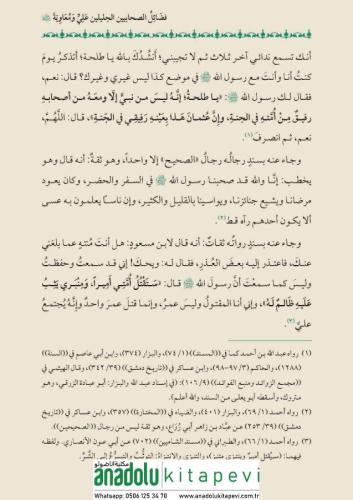 فضائل الصحابيين الجليلين عَلِيٍّ وَمُعَاوِيَةَ
أنك تسمع ندائي آخر ثلاث ثم لا تجيبني؛ أَنْشُدُكَ بالله يا طلحة؛ أتذكر يومَ
كنتُ أنا وأنتَ مع رسول الله ﷺ في موضع كذا ليس غيري وغيرك؟ قال: نعم،
فقال لك رسول الله ﷺ: «يـا طلحة؛ إنَّهُ ليسَ مـن نبيٍّ إلَّا ومعهُ مـن أصحابِهِ
رفيقٌ مِنْ أُمَّتِهِ في الجنةِ، وإنَّ عُثمـانَ هَـذا بِعَيْنِـهِ رَفِيقِي في الجَنةِ»، قال: اللَّهُمَّ،
نعم، ثم انصرفَ(١).
وجاء عنه بسندٍ رجالُه رجالُ «الصحيح» إلا واحداً، وهو ثقةٌ: أنه قال وهو
يخطب: إنَّا والله قد صحبنا رسول الله ﷺ في السفر والحضر، وكان يعود
مرضانا ويشيع جنائزنا، ويواسينا بالقليل والكثير، وإن ناساً يعلمون به عسى
ألا يكون أحدهم رآه قط(٢).
وجاء عنه بسندٍ رواتُه ثقاتٌ: أنه قال لابن مسعود: هل أنتَ مُنتهٍ عما بلغني
عنك، فاعتذر إليه بعضَ العُذرِ، فقال له: ويحكَ! إني قد سمعتُ وحفظتُ
وليس كما سمعتَ أنَّ رسولَ الله ﷺ قال: «سَيُقْتَلُ أُمَّتِي أَمِيراً، وَمُنْبَرِي يَثِبُ
عَلَيهِ ظالِمٌ لَهُ»، وإني أنا المقتولُ وليسَ عمرُ، وإنما قتلَ عمرَ واحدٌ وإنَّهُ يُجتمعُ
عليَّ(٣).
(١) رواه عبد الله بن أحمد كما في ((المسند)) (١/ ٧٤)، والبزار (٣٧٤)، وابن أبي عاصم في ((السنة))
(١٢٨٨)، والحاكم (٣/ ٩٧-٩٨)، وابن عساكر في ((تاريخ دمشق)) (٣٩/ ٣٤٢)، وقال الهيثمي في
((مجمع الزوائد ومنبع الفوائد)) (٩/ ١٠٦): (في إسناد عبد الله والبزار: أبو عبادة الزرقي، وهو
متروك، وأسقطه أبو يعلى من السند، والله أعلم).
(٢) رواه أحمد (١/ ٦٩)، والبزار (٤٠١)، والضياء في ((المختارة)) (٣٥٧)، وابن عساكر في ((تاريخ
دمشق)) (٣٩/ ٢٥٣)، عن عبَّاد بن زاهر أبي رُوَاع، وهو ثقة ليس من رجال ((الصحيحين)).
(٣) رواه أحمد (١/ ٦٦)، والطبراني في ((مسند الشاميين)) (٧٠٢) عن أبي عون الأنصاري. ولفظه
مكتبة الأناضول
anadolu kitapevi
Whatsapp: 0506 125 34 70 www.anadolukitapevi.com.tr